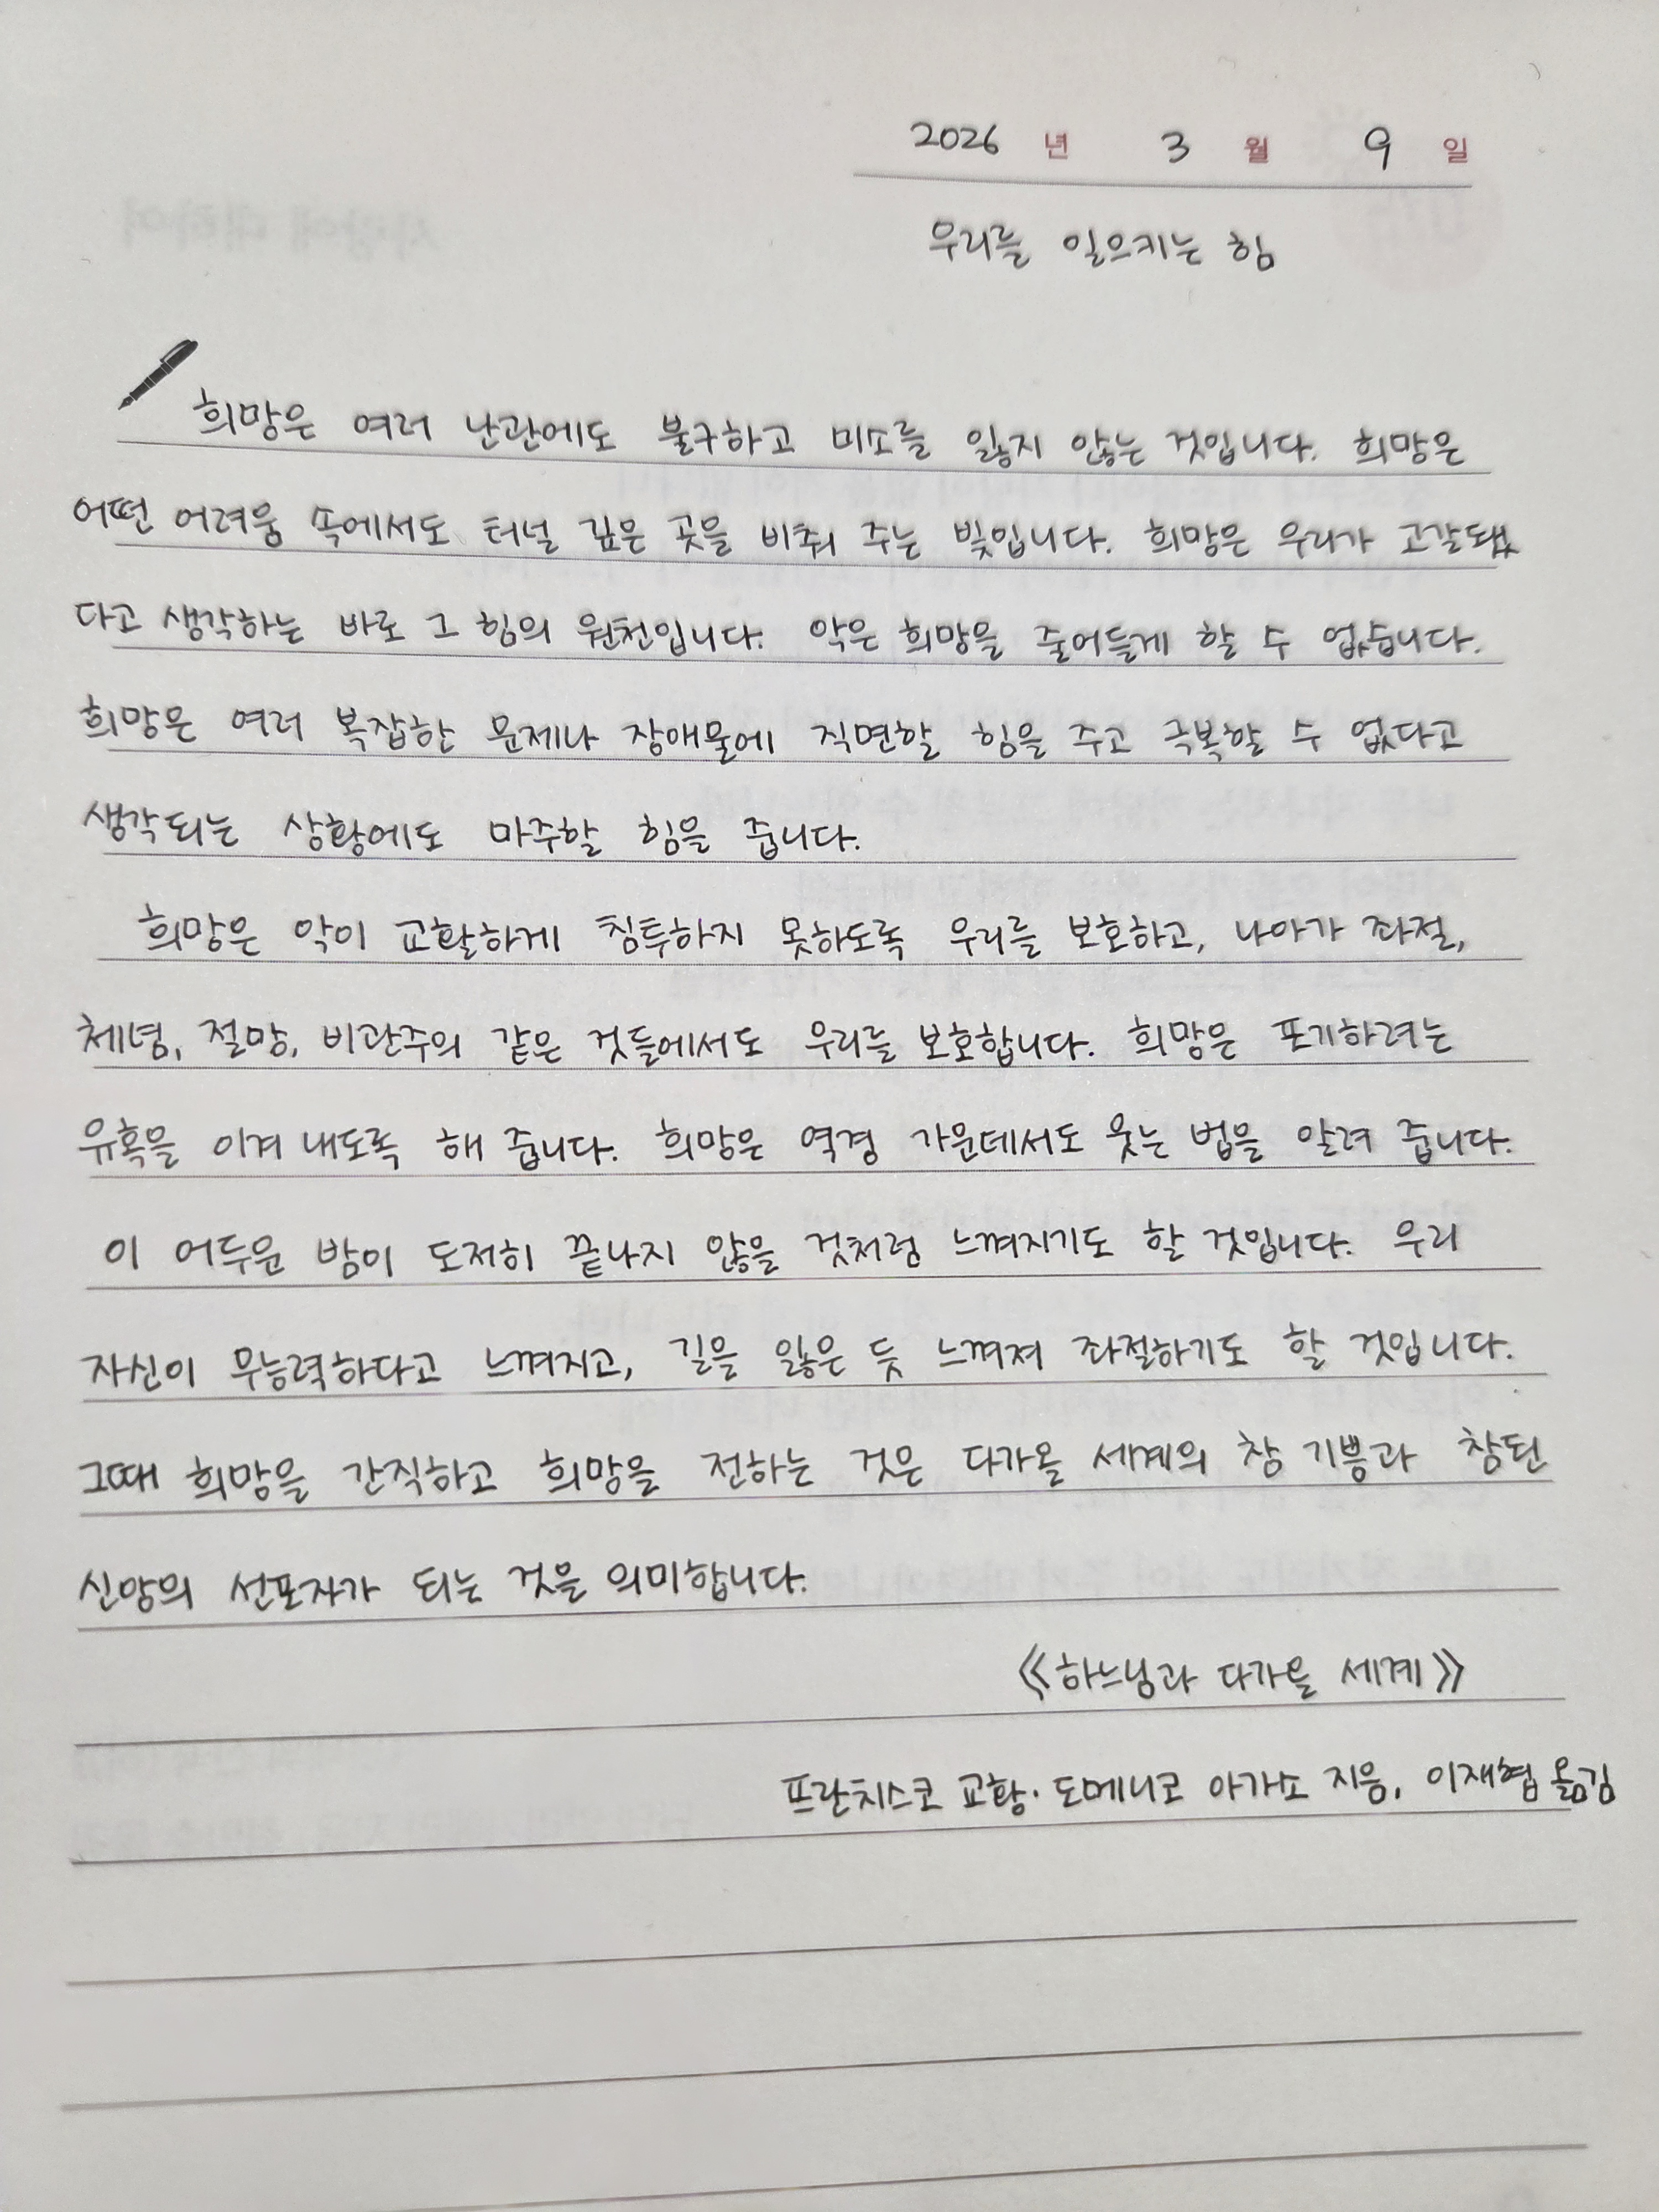 2026 년 3 월 9 일
우리를 일으키는 힘
희망은 여러 난관에도 불구하고 미소를 잃지 않는 것입니다. 희망은
어떤 어려움 속에서도 터널 깊은 곳을 비춰 주는 빛입니다. 희망은 우리가 고갈됐
다고 생각하는 바로 그 힘의 원천입니다. 악은 희망을 줄어들게 할 수 없습니다.
희망은 여러 복잡한 문제나 장애물에 직면할 힘을 주고 극복할 수 없다고
생각되는 상황에도 마주할 힘을 줍니다.
희망은 악이 교활하게 침투하지 못하도록 우리를 보호하고, 나아가 좌절,
체념, 절망, 비관주의 같은 것들에서도 우리를 보호합니다. 희망은 포기하려는
유혹을 이겨 내도록 해 줍니다. 희망은 역경 가운데서도 웃는 법을 알려 줍니다.
이 어두운 밤이 도저히 끝나지 않을 것처럼 느껴지기도 할 것입니다. 우리
자신이 무능력하다고 느껴지고, 길을 잃은 듯 느껴져 좌절하기도 할 것입니다.
그때 희망을 간직하고 희망을 전하는 것은 다가올 세계의 참 기쁨과 참된
신앙의 선포자가 되는 것을 의미합니다.
《하느님과 다가올 세계》
프란치스코 교황·도메니코 아가소 지음, 이재협 옮김